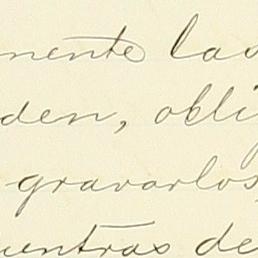 mente las
den, obli
gravarlos,
uentras de